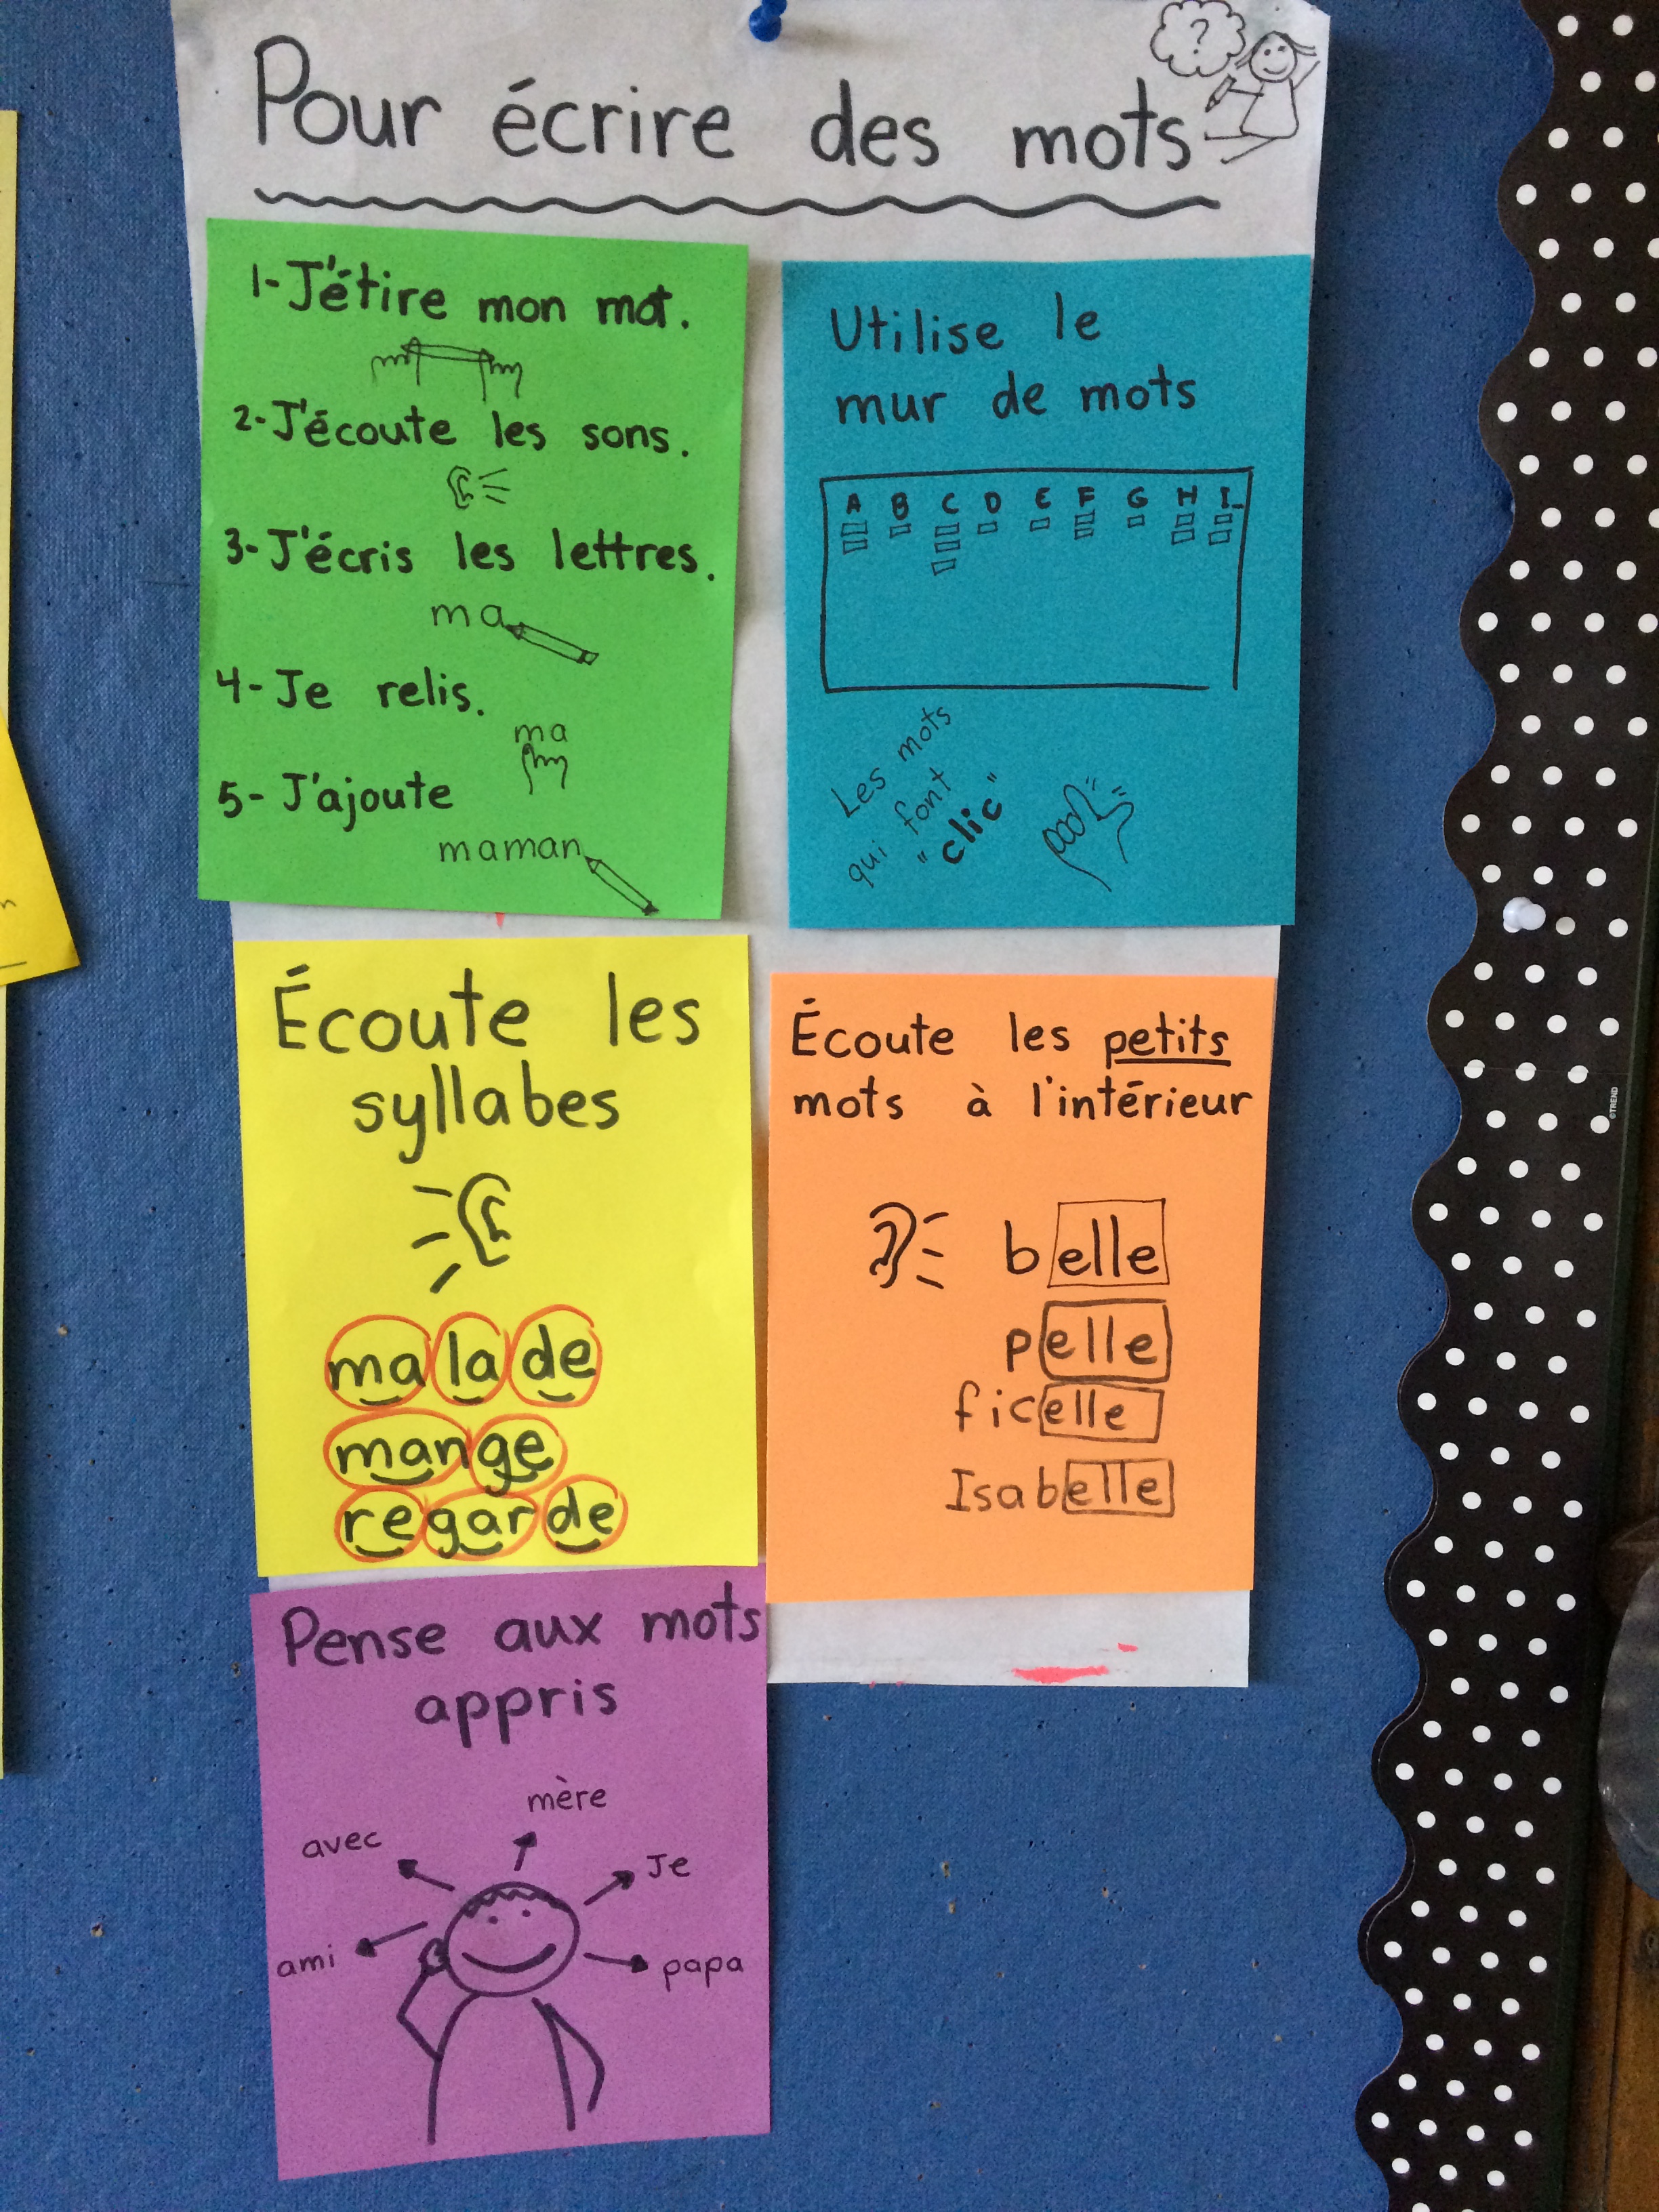 Pour écrire des mots
?
1- J'étire mon mot.
2- J'écoute les sons.
3- J'écris les lettres.
ma
4- Je relis.
ma
5- J'ajoute
maman
Utilise le
mur de mots
A B C D E F G H I
Les mots
qui font
"clic"
Écoute les
syllabes
malade
mange
regarde
Écoute les petits
mots à l'intérieur
belle
pelle
ficelle
Isabelle
Pense aux mots
appris
mère
avec
Je
ami
papa
©TREND